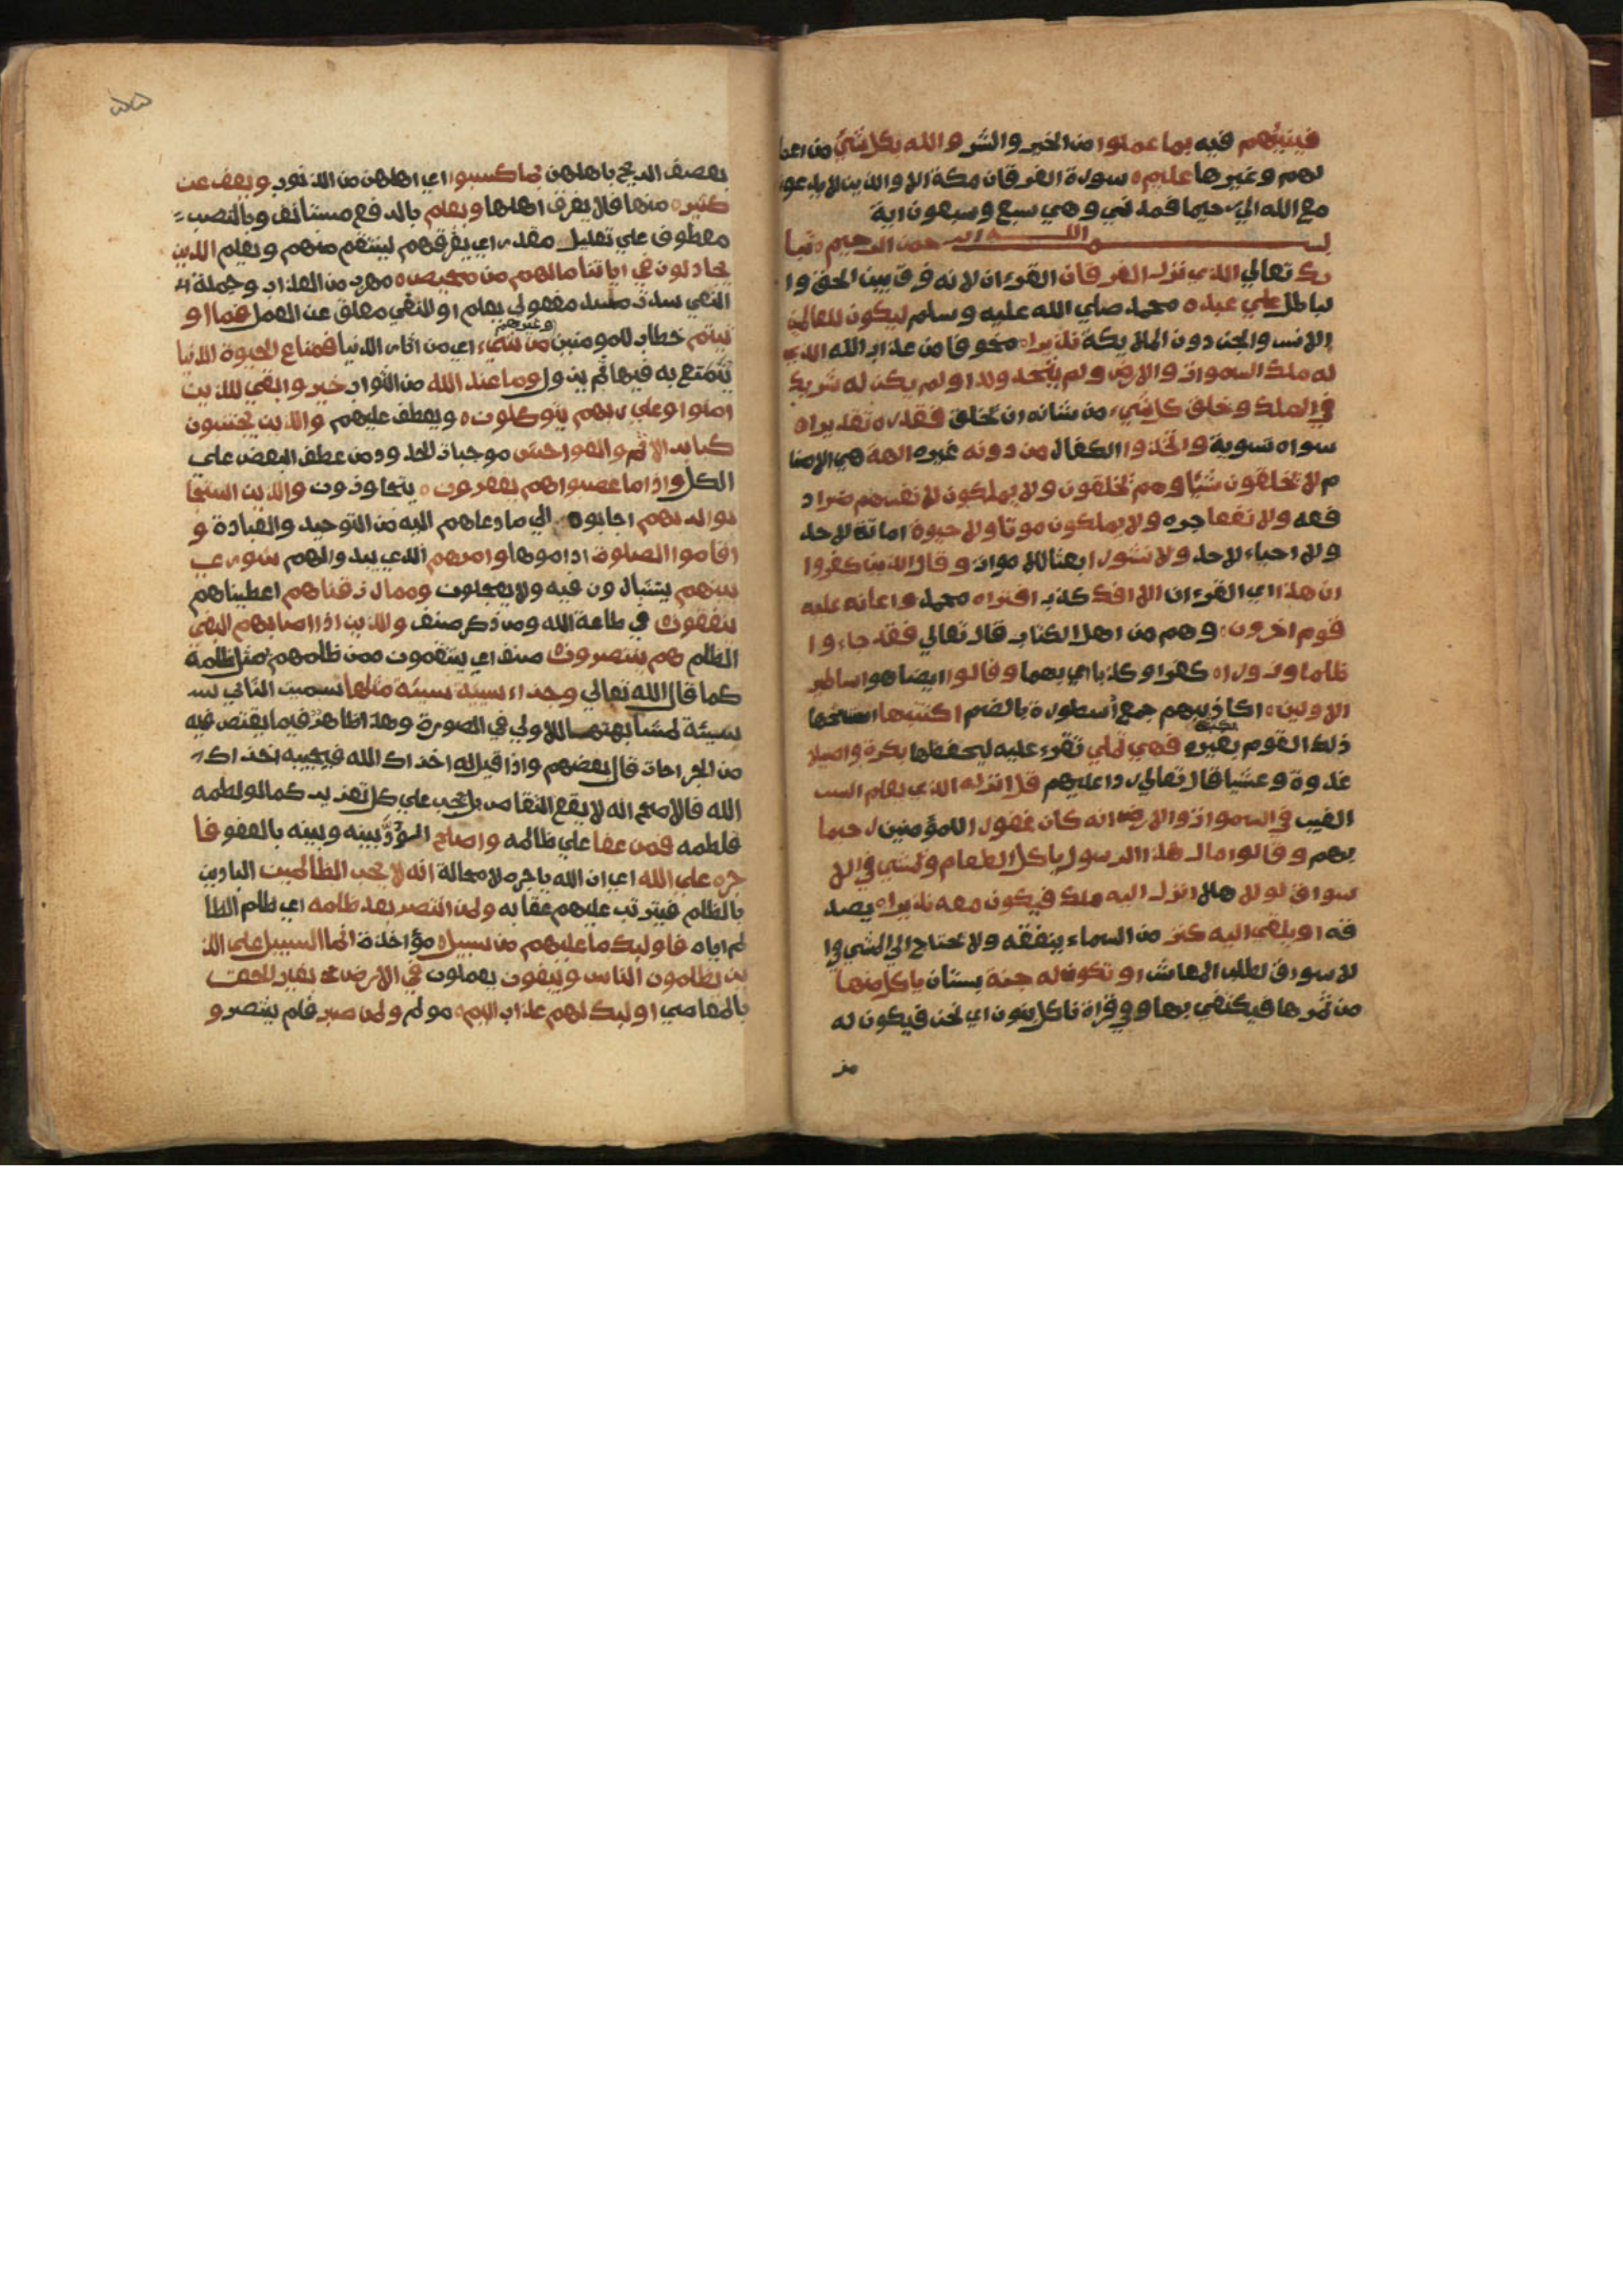 فينبئهم فيه بما عملوا من الخير والشر والله بكل شيء من اعما
لهم وغيرها عليم ه سورة الفرقان مكة الا والذين لا يدعون
مع الله الي رحيما فمدني وهي سبع وسبعون اية
بسم الله الرحمن الرحيم ه تبا
رك تعالي الذي نزل الفرقان القرءان لانه فرق بين الحق وا
لباطل علي عبده محمد صلي الله عليه وسلم ليكون للعالمين
الانس والجن دون الملايكة نذيرا ه مخوفا من عذاب الله الذي
له ملك السموات والارض ولم يتخذ ولدا ولم يكن له شريك
في الملك وخلق كل شيء من شانه ان يخلق فقدره تقديرا ه
سواه تسوية واتخذوا الكفار من دونه غيره الهة هي الاصنا
م لا يخلقون شيئا وهم يخلقون ولا يملكون لانفسهم ضرا د
فعه ولا نفعا جره ولا يملكون موتا ولا حيوة اماتة لاحد
ولا احياء لاحد ولا نشورا بعثا للاموات وقال الذين كفروا
ان هذا اي القرءان الا افك كذب افتراه محمد واعانه عليه
قوم اخرون ه وهم من اهل الكتاب قال تعالي فقد جاءوا
ظلما وزورا ه كفرا وكذبا اي بهما وقالوا ايضا هو اساطير
الاولين ه اكاذيبهم جمع أسطورة بالضم اكتتبها استنسخها
ذلك القوم بغيره فهي تملي تقرء عليه ليحفظها بكرة واصيلا
غدوة وعشيا قال تعالي ردا عليهم قل انزله الذي يعلم السر
الغيب في السموات والارض انه كان غفورا للمؤمنين رحيما
بهم وقالوا مال هذا الرسول ياكل الطعام ويمشي في الا
سواق لولا هلا انزل اليه ملك فيكون معه نذيرا ه يصد
قه او يلقي اليه كنز من السماء ينفقه ولا يحتاج الي المشي في ا
لاسواق لطلب المعاش او تكون له جنة بستان ياكل منها
من ثمرها فيكتفي بها وفي قراة ناكل بنون اي نحن فيكون له
بعصف الريح باهلهن بما كسبوا اي اهلهن من الذنوب ويعف عن
كثير ه منها فلا يغرق اهلها ويعلم بالرفع مستانف وبالنصب
معطوف علي تعليل مقدر اي يغرقهم لينتقم منهم ويعلم الذين
يجادلون في اياتنا ما لهم من محيص ه مهرب من العذاب وجملة
النفي سدت مسد مفعولي يعلم او النفي معلق عن العمل فما او
تيتم خطاب للمومنين وغيرهم من شيء اي من اثاث الدنيا فمتاع الحيوة الدنيا
يتمتع به فيها ثم يزول وما عند الله من الثواب خير وابقي للذين
امنوا وعلي ربهم يتوكلون ه ويعطف عليهم والذين يجتنبون
كباير الاثم والفواحش موجبات الحدود من عطف البعض علي
الكل واذا ما غضبوا هم يغفرون ه يتجاوزون والذين استجا
بوا لربهم اجابوه الي ما دعاهم اليه من التوحيد والعبادة و
اقاموا الصلوة اداموها وامرهم الذي يبدوا لهم شوري
بينهم يتشاورون فيه ولا يعجلون ومما رزقناهم اعطيناهم
ينفقون في طاعة الله ومن ذكر صنف والذين اذا اصابهم البغي
الظلم هم ينتصرون صنف اي ينتقمون ممن ظلمهم بمثل ظلمه
كما قال الله تعالي وجزاء سيئة سيئة مثلها سميت الثاني
سيئة لمشابهتها للاولي في الصورة وهذا ظاهر فيما يقتص فيه
من الجراحات قال بعضهم واذا قيل له اخزاك الله فيجيبه اخزاك
الله فالاصح انه لا يقع التقاص بل يجب علي كل تعزير كما لو لطمه
فلطمه فمن عفا علي ظالمه واصلح الودّ بينه وبينه بالعفو فا
جره علي الله اي ان الله ياجره لا محالة انه لا يحب الظالمين البادين
بالظلم فيترتب عليهم عقابه ولمن انتصر بعد ظلمه اي ظلم الظا
لم اياه فاوليك ما عليهم من سبيل ه مؤاخذة انما السبيل علي الذ
ين يظلمون الناس ويبغون يعملون في الارض بغير الحق
بالمعاصي اوليك لهم عذاب اليم ه مولم ولمن صبر فلم ينتصر و